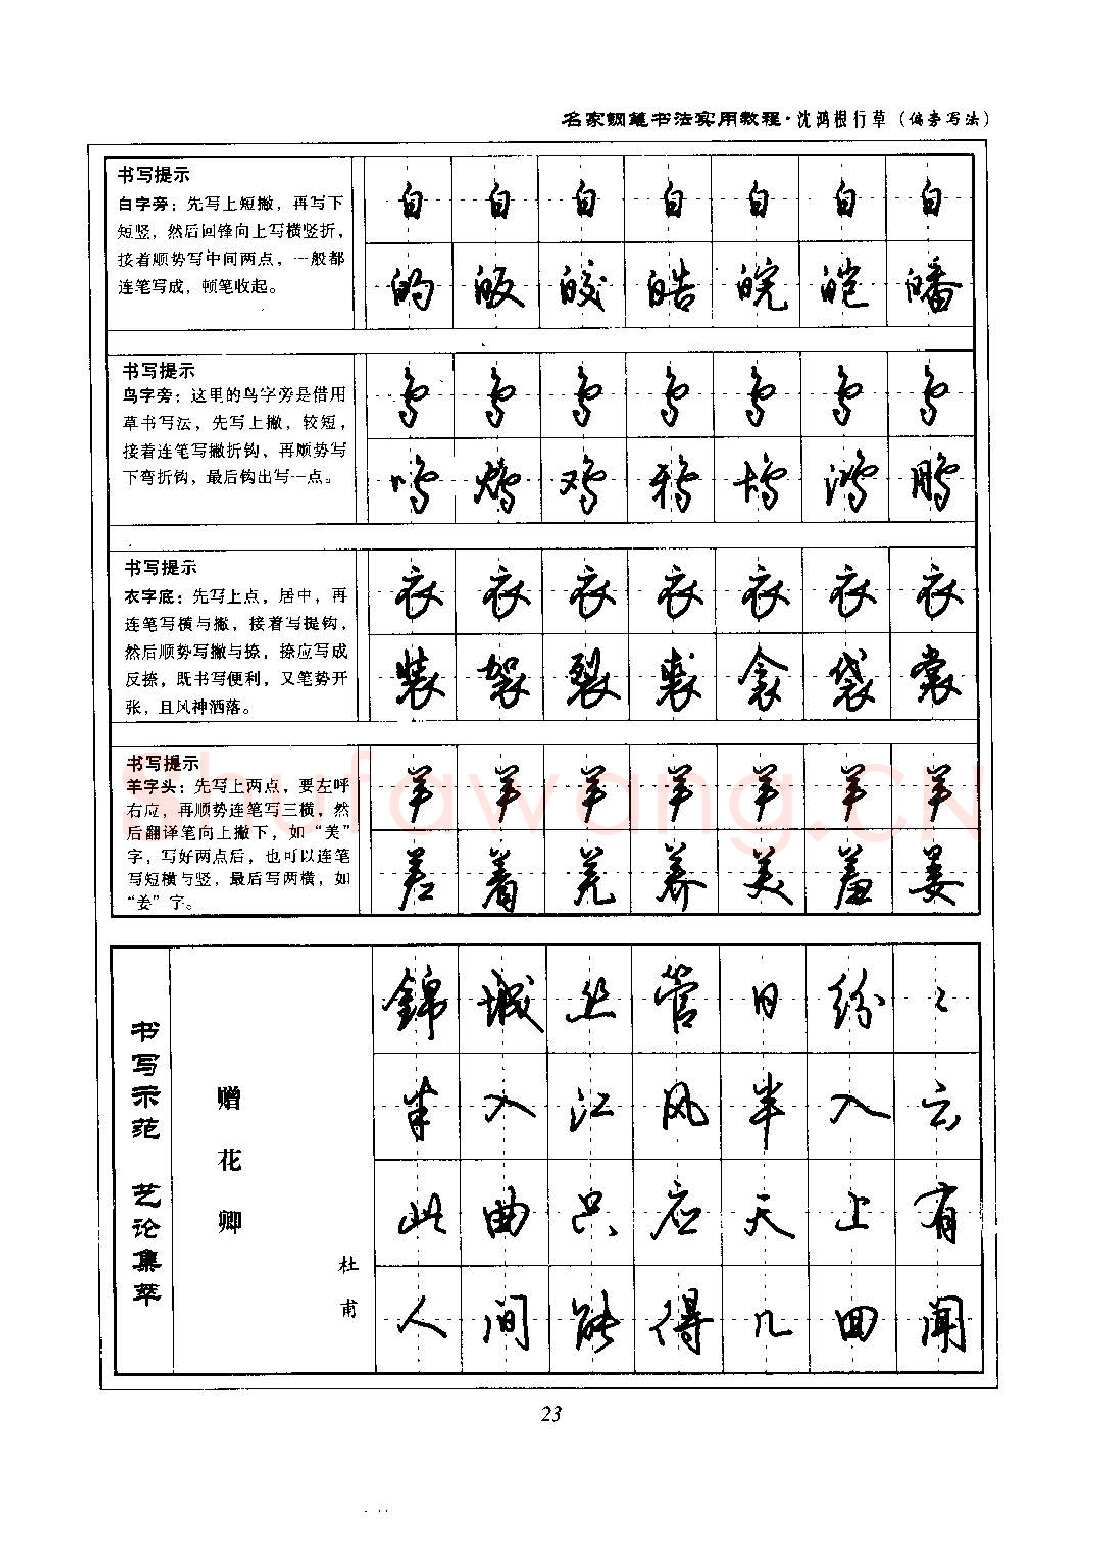 名家钢笔书法实用教程·沈鸿根行草（偏旁写法）
书写提示
白字旁：先写上短撇，再写下
短竖，然后回锋向上写横竖折，
接着顺势写中间两点，一般都
连笔写成，顿笔收起。
白 白 白 白 白 白 白
的 皈 皎 皓 皖 皑 皤
书写提示
鸟字旁：这里的鸟字旁是借用
草书写法，先写上撇，较短，
接着连笔写撇折钩，再顺势写
下弯折钩，最后钩出写一点。
鸣 鸡 鸦 鸪 鸿 鹏
书写提示
衣字底：先写上点，居中，再
连笔写横与撇，接着写提钩，
然后顺势写撇与捺，捺应写成
反捺，既书写便利，又笔势开
张，且风神洒落。
衣 衣 衣 衣 衣 衣 衣
装 袈 裂 裘 衾 袋 裳
书写提示
羊字头：先写上两点，要左呼
右应，再顺势连笔写三横，然
后翻译笔向上撇下，如“美”
字，写好两点后，也可以连笔
写短横与竖，最后写两横，如
“姜”字。
羊 羊 羊 羊 羊 羊 羊
差 着 羌 养 美 羞 姜
Shufawang.CN
书写示范 艺论集萃
赠花卿
杜甫
錦 城 丝 管 日 纷 〻
半 入 江 风 半 入 云
此 曲 只 应 天 上 有
人 间 能 得 几 回 闻
23